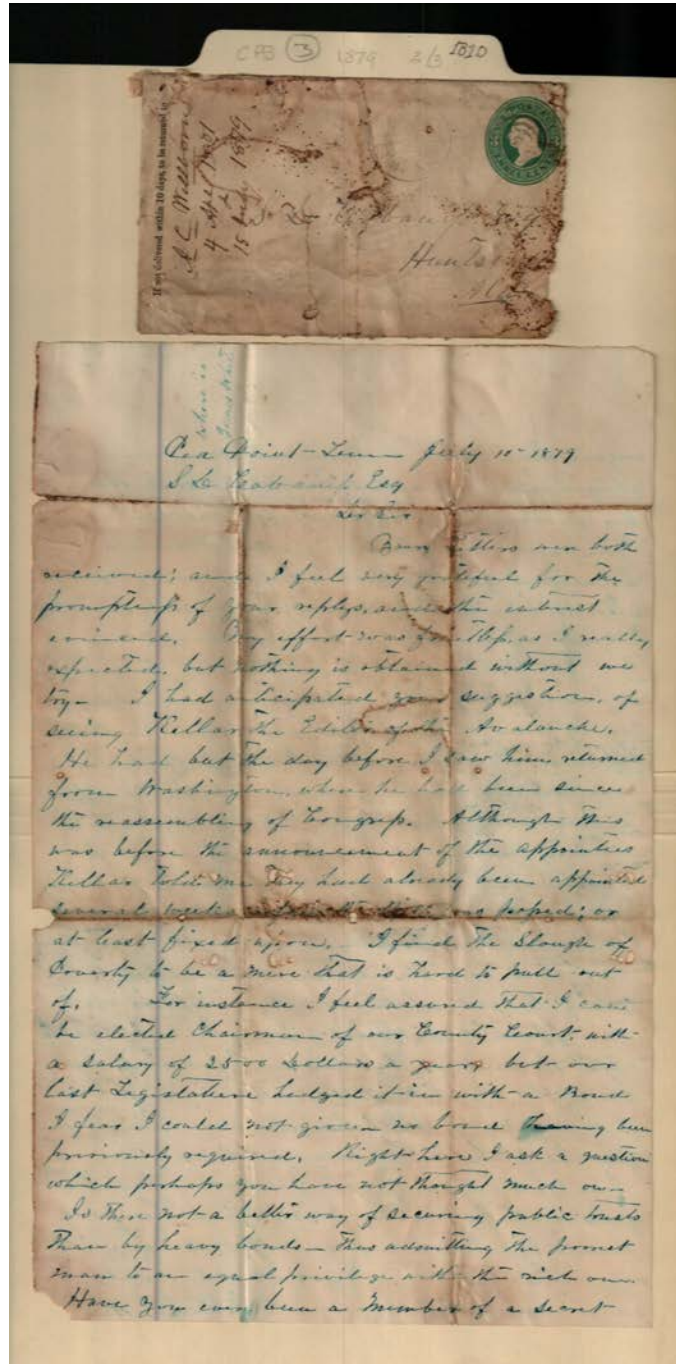 CPB 3 1879 2/3 1810
If not delivered within 10 days, to be returned to
A C Wellborn
4 Apr 1821
&
15 July 1879
Hunts
Where is
Pea Point Tenn July 10 1879
S D Esq
Dr Sir
Your letters were both
received; and I feel very grateful for the
promptness of your replys, and the interest
evinced. My effort was fruitless, as I really
expected, but nothing is obtained without we
try. I had anticipated your suggestion, of
seeing Kellar the Editor of the Avalanche.
He had but the day before I saw him, returned
from Washington, where he had been since
the reassembling of Congress. Although this
was before the announcement of the appointees
Kellar told me they had already been appointed
several weeks
at least fixed upon. I find the Slough of
Poverty to be a mire that is hard to pull out
of. For instance I feel assured that I can
be elected Chairman of our County Court, with
a salary of 2500 Dollars a year, but our
last Legislature hedged it in with a Bond
I fear I could not give no bond having been
previously required. Right here I ask a question
which perhaps you have not thought much on
Is there not a better way of securing public trusts
Than by heavy bonds thus admitting the
man to an equal privilege with the rich one
Have you ever been a Member of a secret